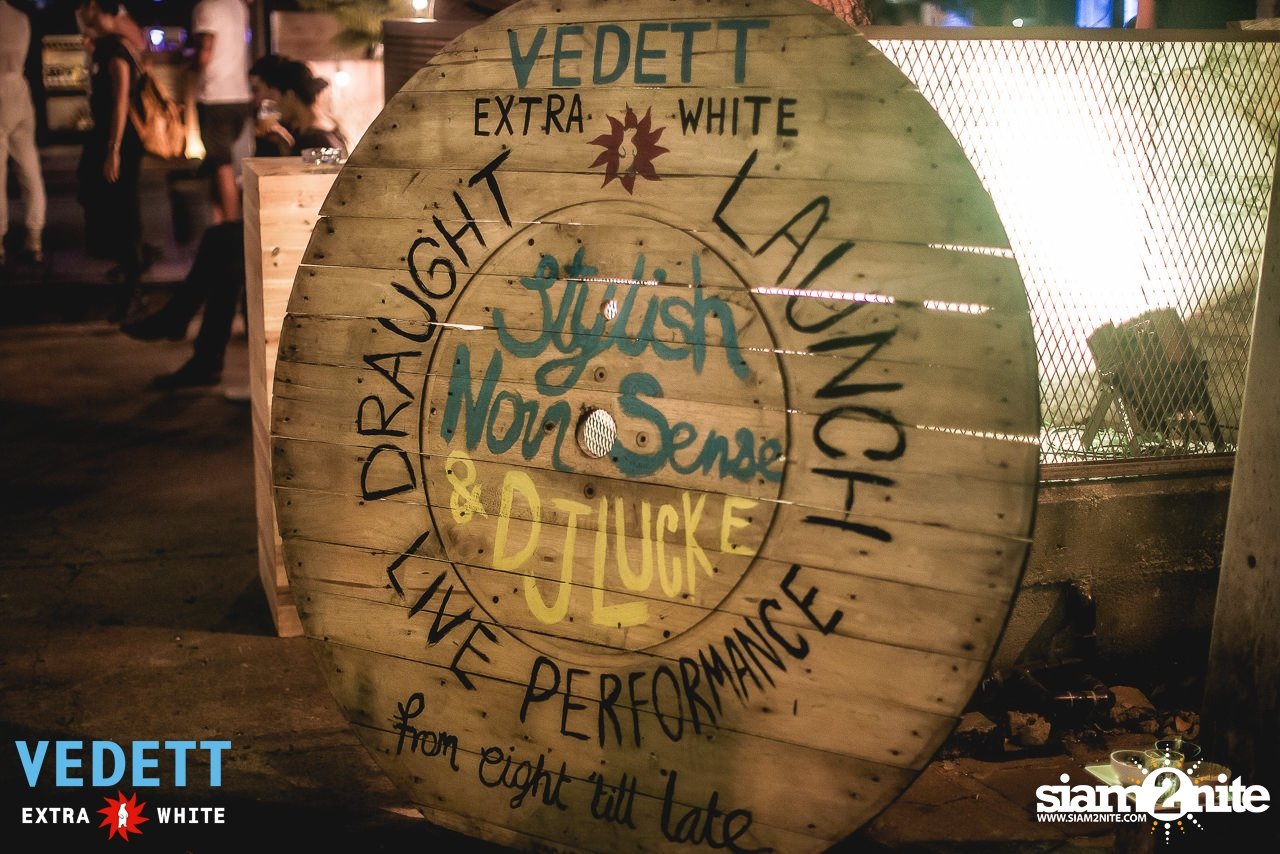 VEDETT
EXTRA WHITE
DRAUGHT LAUNCH
Stylish
Non Sense
& DJ LUCKE
LIVE PERFORMANCE
from eight 'till late
VEDETT
EXTRA WHITE
siam2nite
WWW.SIAM2NITE.COM